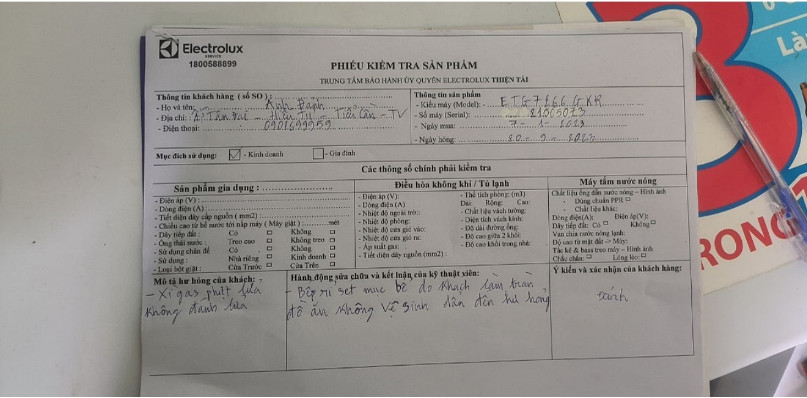 Electrolux
SERVICE
1800588899
PHIẾU KIỂM TRA SẢN PHẨM
TRUNG TÂM BẢO HÀNH ỦY QUYỀN ELECTROLUX THIỆN TÀI
Thông tin khách hàng ( số SO ) :
- Họ và tên: Anh Bảnh
- Địa chỉ: Hiếu Tử - Tiểu Cần - TV
- Điện thoại : 0901699959
Thông tin sản phẩm
- Kiểu máy (Model): ETG7266GKR
- Số máy (Serial): 21305073
- Ngày mua: 7-1-2023
- Ngày hỏng: 20-9-2023
Mục đích sử dụng: - Kinh doanh - Gia đình
Các thông số chính phải kiểm tra
Sản phẩm gia dụng :
- Điện áp (V):
- Dòng điện (A) :
- Tiết diện dây cấp nguồn ( mm2) :
- Chiều cao từ bể nước tới nắp máy ( Máy giặt ) : mét
- Dây tiếp đất : Có Không
- Ống thải nước : Treo cao Không treo
- Sử dụng chân đế Có Không
- Sử dụng : Nhà riêng Kinh doanh
- Loại bột giặt : Cửa Trước Cửa Trên
Điều hòa không khí / Tủ lạnh
- Điện áp (V):
- Dòng điện(A):
- Nhiệt độ ngoài trờ:
- Nhiệt độ phòng:
- Nhiệt độ của gió vào:
- Nhiệt độ của gió ra:
- Áp suất gas:
- Tiết diện dây nguồn (mm2) :
- Thể tích phòng: (m3)
Dài: Rộng: Cao:
- Chất liệu vách tường:
- Diện tích vách kính:
- Độ dài đường ống:
- Độ cao giữa 2 khối:
- Độ cao khối trong nhà:
Máy tắm nước nóng
Chất liệu ống dẫn nước nóng – Hình ảnh
- Dùng chuẩn PPR
- Chất liệu khác:
Dòng điện(A): Điện áp(V):
Dây tiếp đất: Có Không
Van chia nước nóng lạnh:
Độ cao từ mặt đất -> Máy:
Tắc kê & bass treo máy – Hình ảnh
Chắc chắn: Lỏng lẻo:
Mô tả hư hỏng của khách:
- Xì gas phựt lửa
không đánh lửa
Hành động sửa chữa và kết luận của kỹ thuật viên:
- Bếp rỉ sét mục bể do khách làm tràn
đồ ăn không vệ sinh dẫn đến hư hỏng
Ý kiến và xác nhận của khách hàng:
bánh
3
RONG
Là